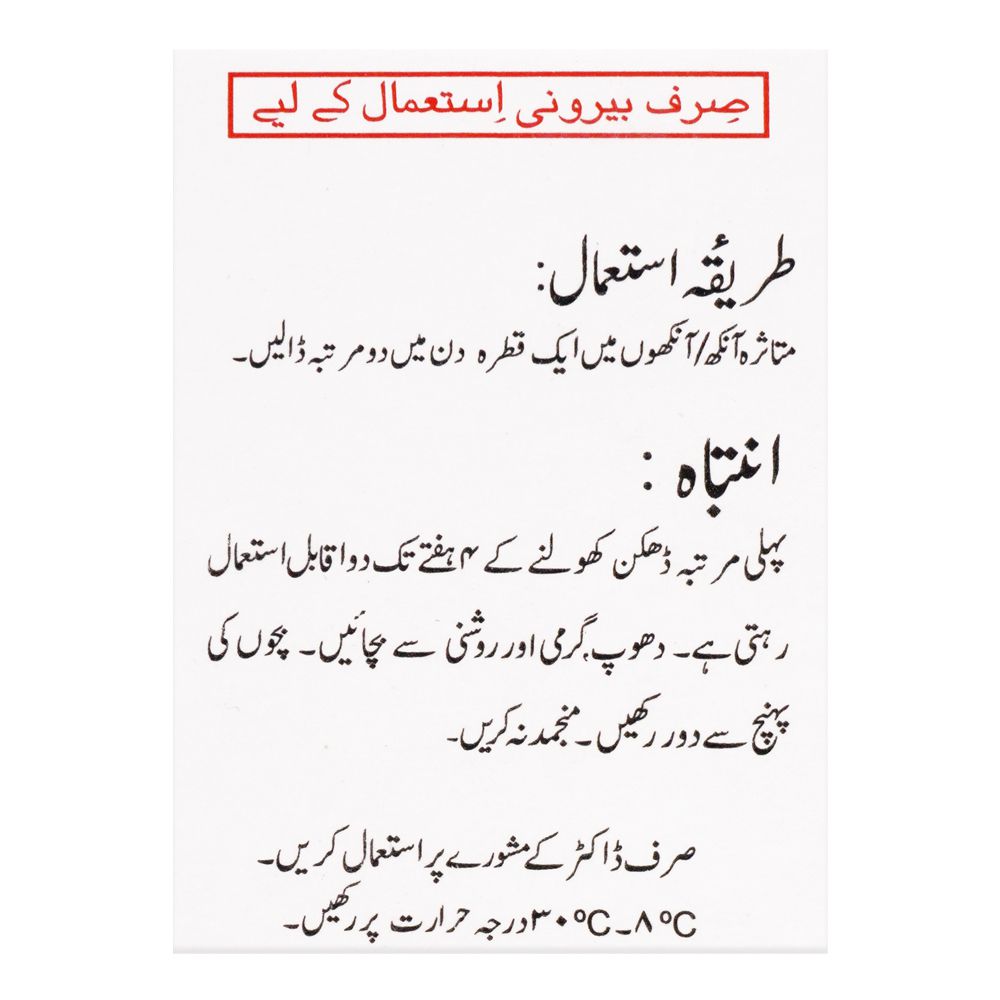 صِرف بیرونی اِستعمال کے لیے
طریقۂ استعمال:
متاثرہ آنکھ/آنکھوں میں ایک قطرہ دن میں دو مرتبہ ڈالیں۔
انتباہ :
پہلی مرتبہ ڈھکن کھولنے کے ۴ ہفتے تک دوا قابل استعمال
رہتی ہے۔ دھوپ، گرمی اور روشنی سے بچائیں۔ بچوں کی
پہنچ سے دور رکھیں۔ منجمد نہ کریں۔
صرف ڈاکٹر کے مشورے پر استعمال کریں۔
۸ºC۔۳۰ºC درجہ حرارت پر رکھیں۔